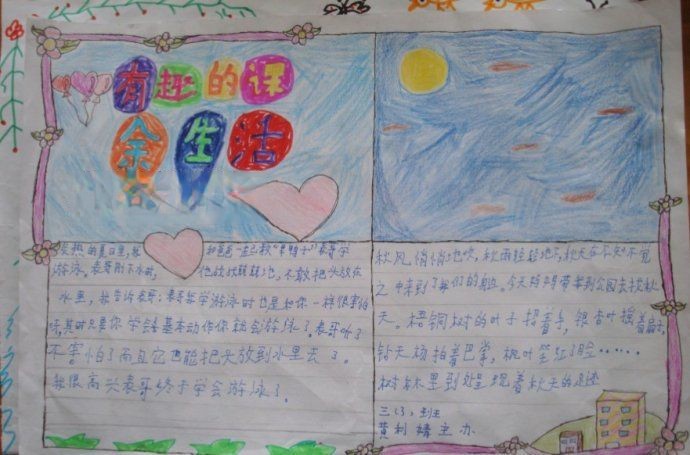 有趣的课
余生活
炎热的夏日里，我
和爸爸一起教"旱鸭子"表哥学
游泳。表哥刚下水时，
他战战兢兢地，不敢把头放在
水里，我告诉表哥：表哥我学游泳时也是和你一样很害怕
呀，其时只要你学会基本动作你就会游泳了。表哥听了
不害怕了而且它也能把头放到水里去了。
我很高兴表哥终于学会游泳了。
秋风，悄悄地吹，秋雨轻轻地下，秋天在不知不觉
之中来到了我们的身边。今天妈妈带我到公园去找秋
天。梧铜树的叶子招着手，银杏叶摇着扇子，
钻天杨拍着巴掌，枫叶坐红了脸……
树林里到处呈现着秋天的足迹
三（3）班
黄利婧主办